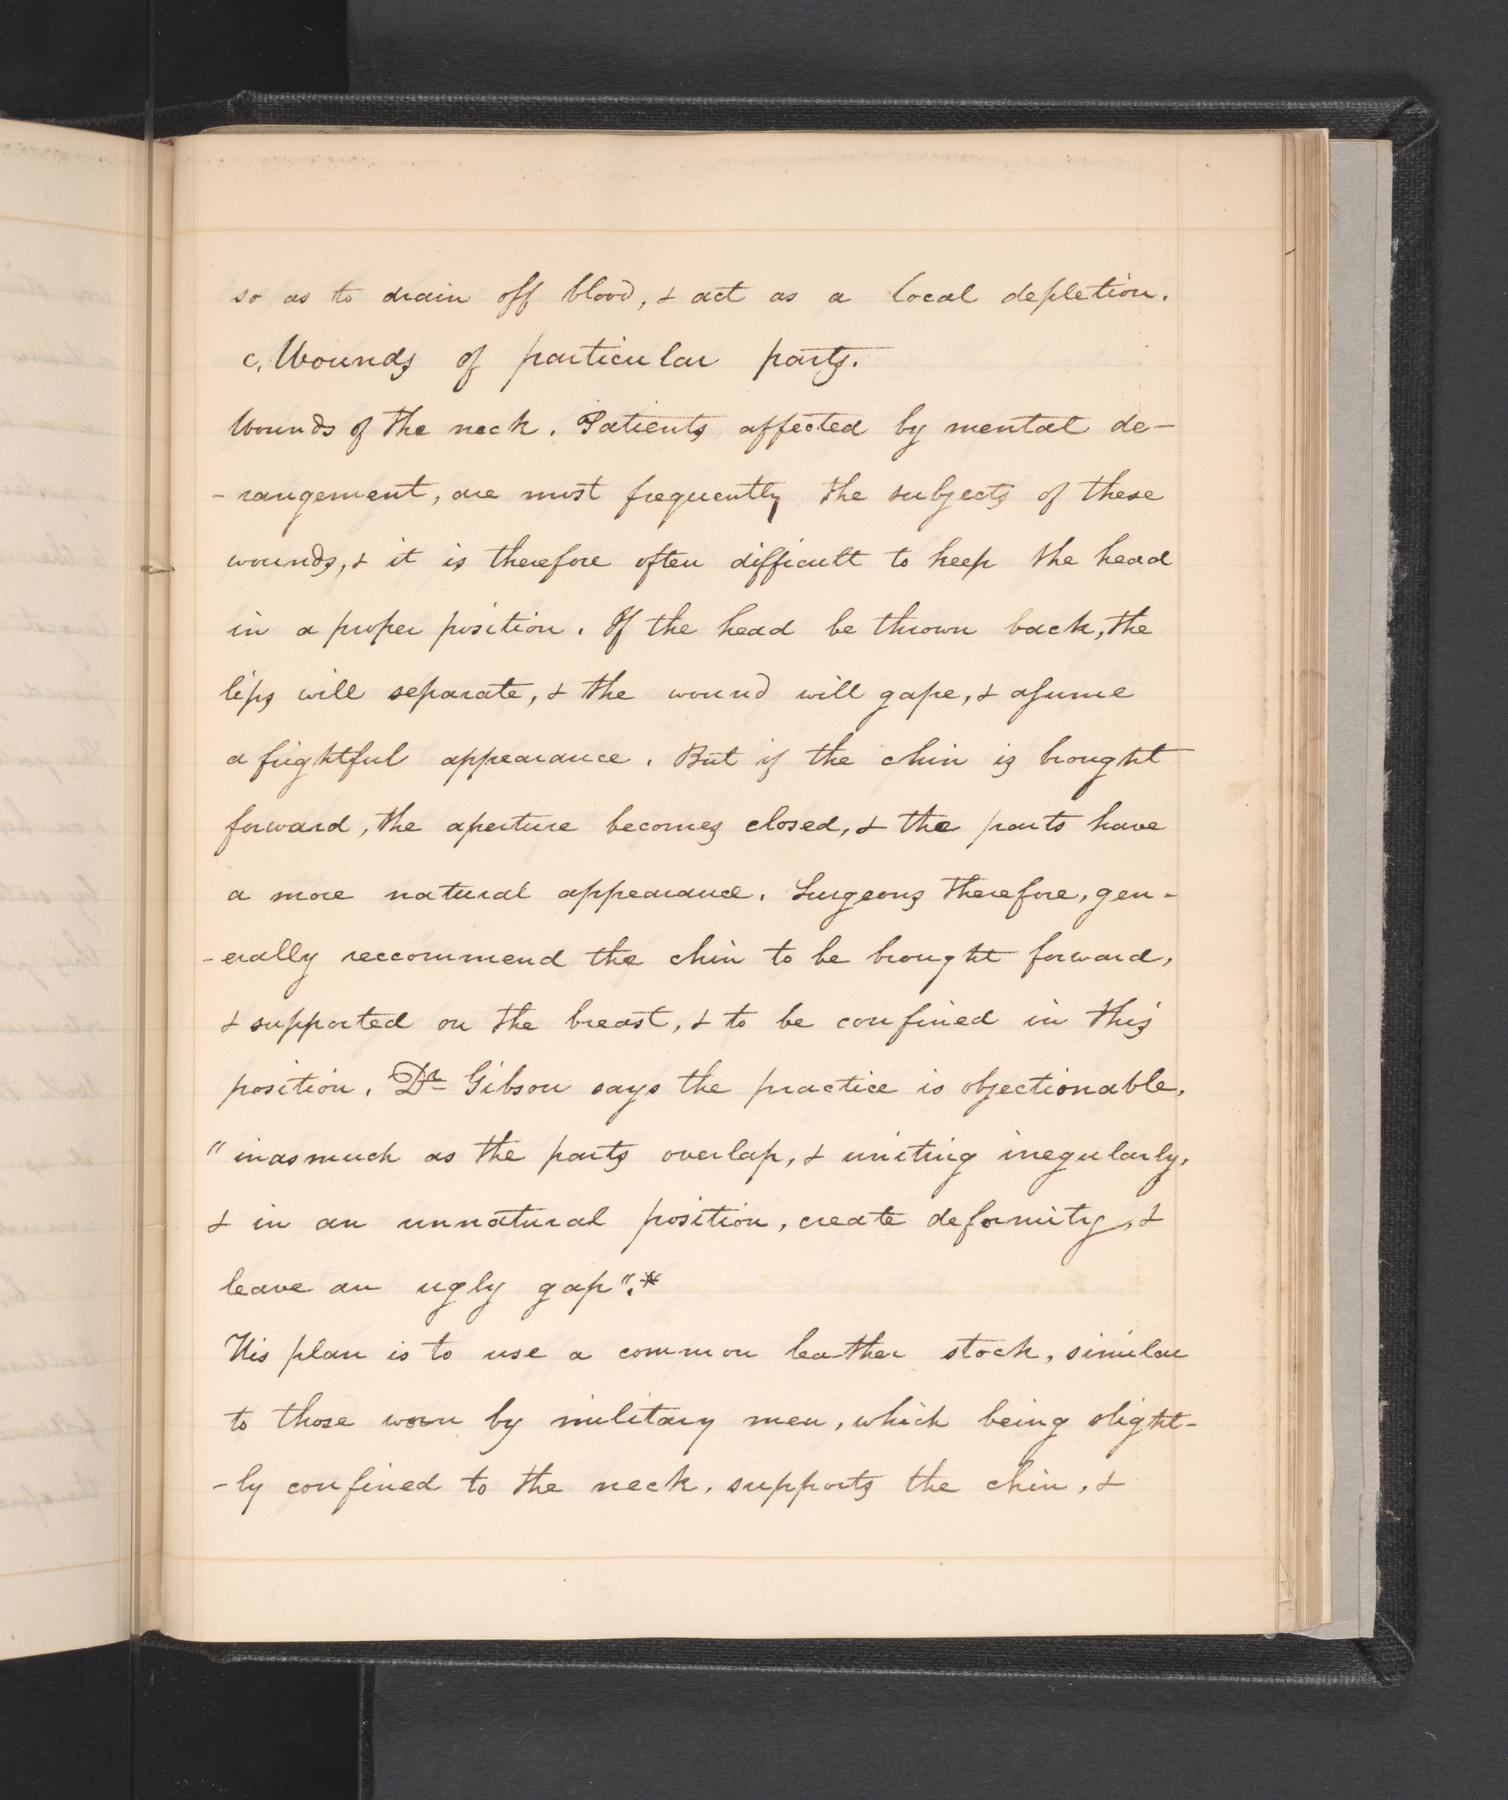 so as to drain off blood, & act as a local depletion.
c. Wounds of particular parts.
Wounds of the neck. Patients affected by mental de-
- rangement, are most frequently the subjects of these
wounds, & it is therefore often difficult to keep the head
in a proper position. If the head be thrown back, the
lips will separate, & the wound will gape, & assume
a frightful appearance. But if the chin is brought
forward, the aperture becomes closed, & the parts have
a more natural appearance. Surgeons therefore, gen-
- erally reccommend the chin to be brought forward,
& supported on the breast, & to be confined in this
position. Dr Gibson says the practice is objectionable,
"inasmuch as the parts overlap, & uniting iregularly,
& in an unnatural position, create deformity, &
leave an ugly gap".*
His plan is to use a common leather stock, similar
to those worn by military men, which being slight-
- ly confined to the neck, supports the chin, &